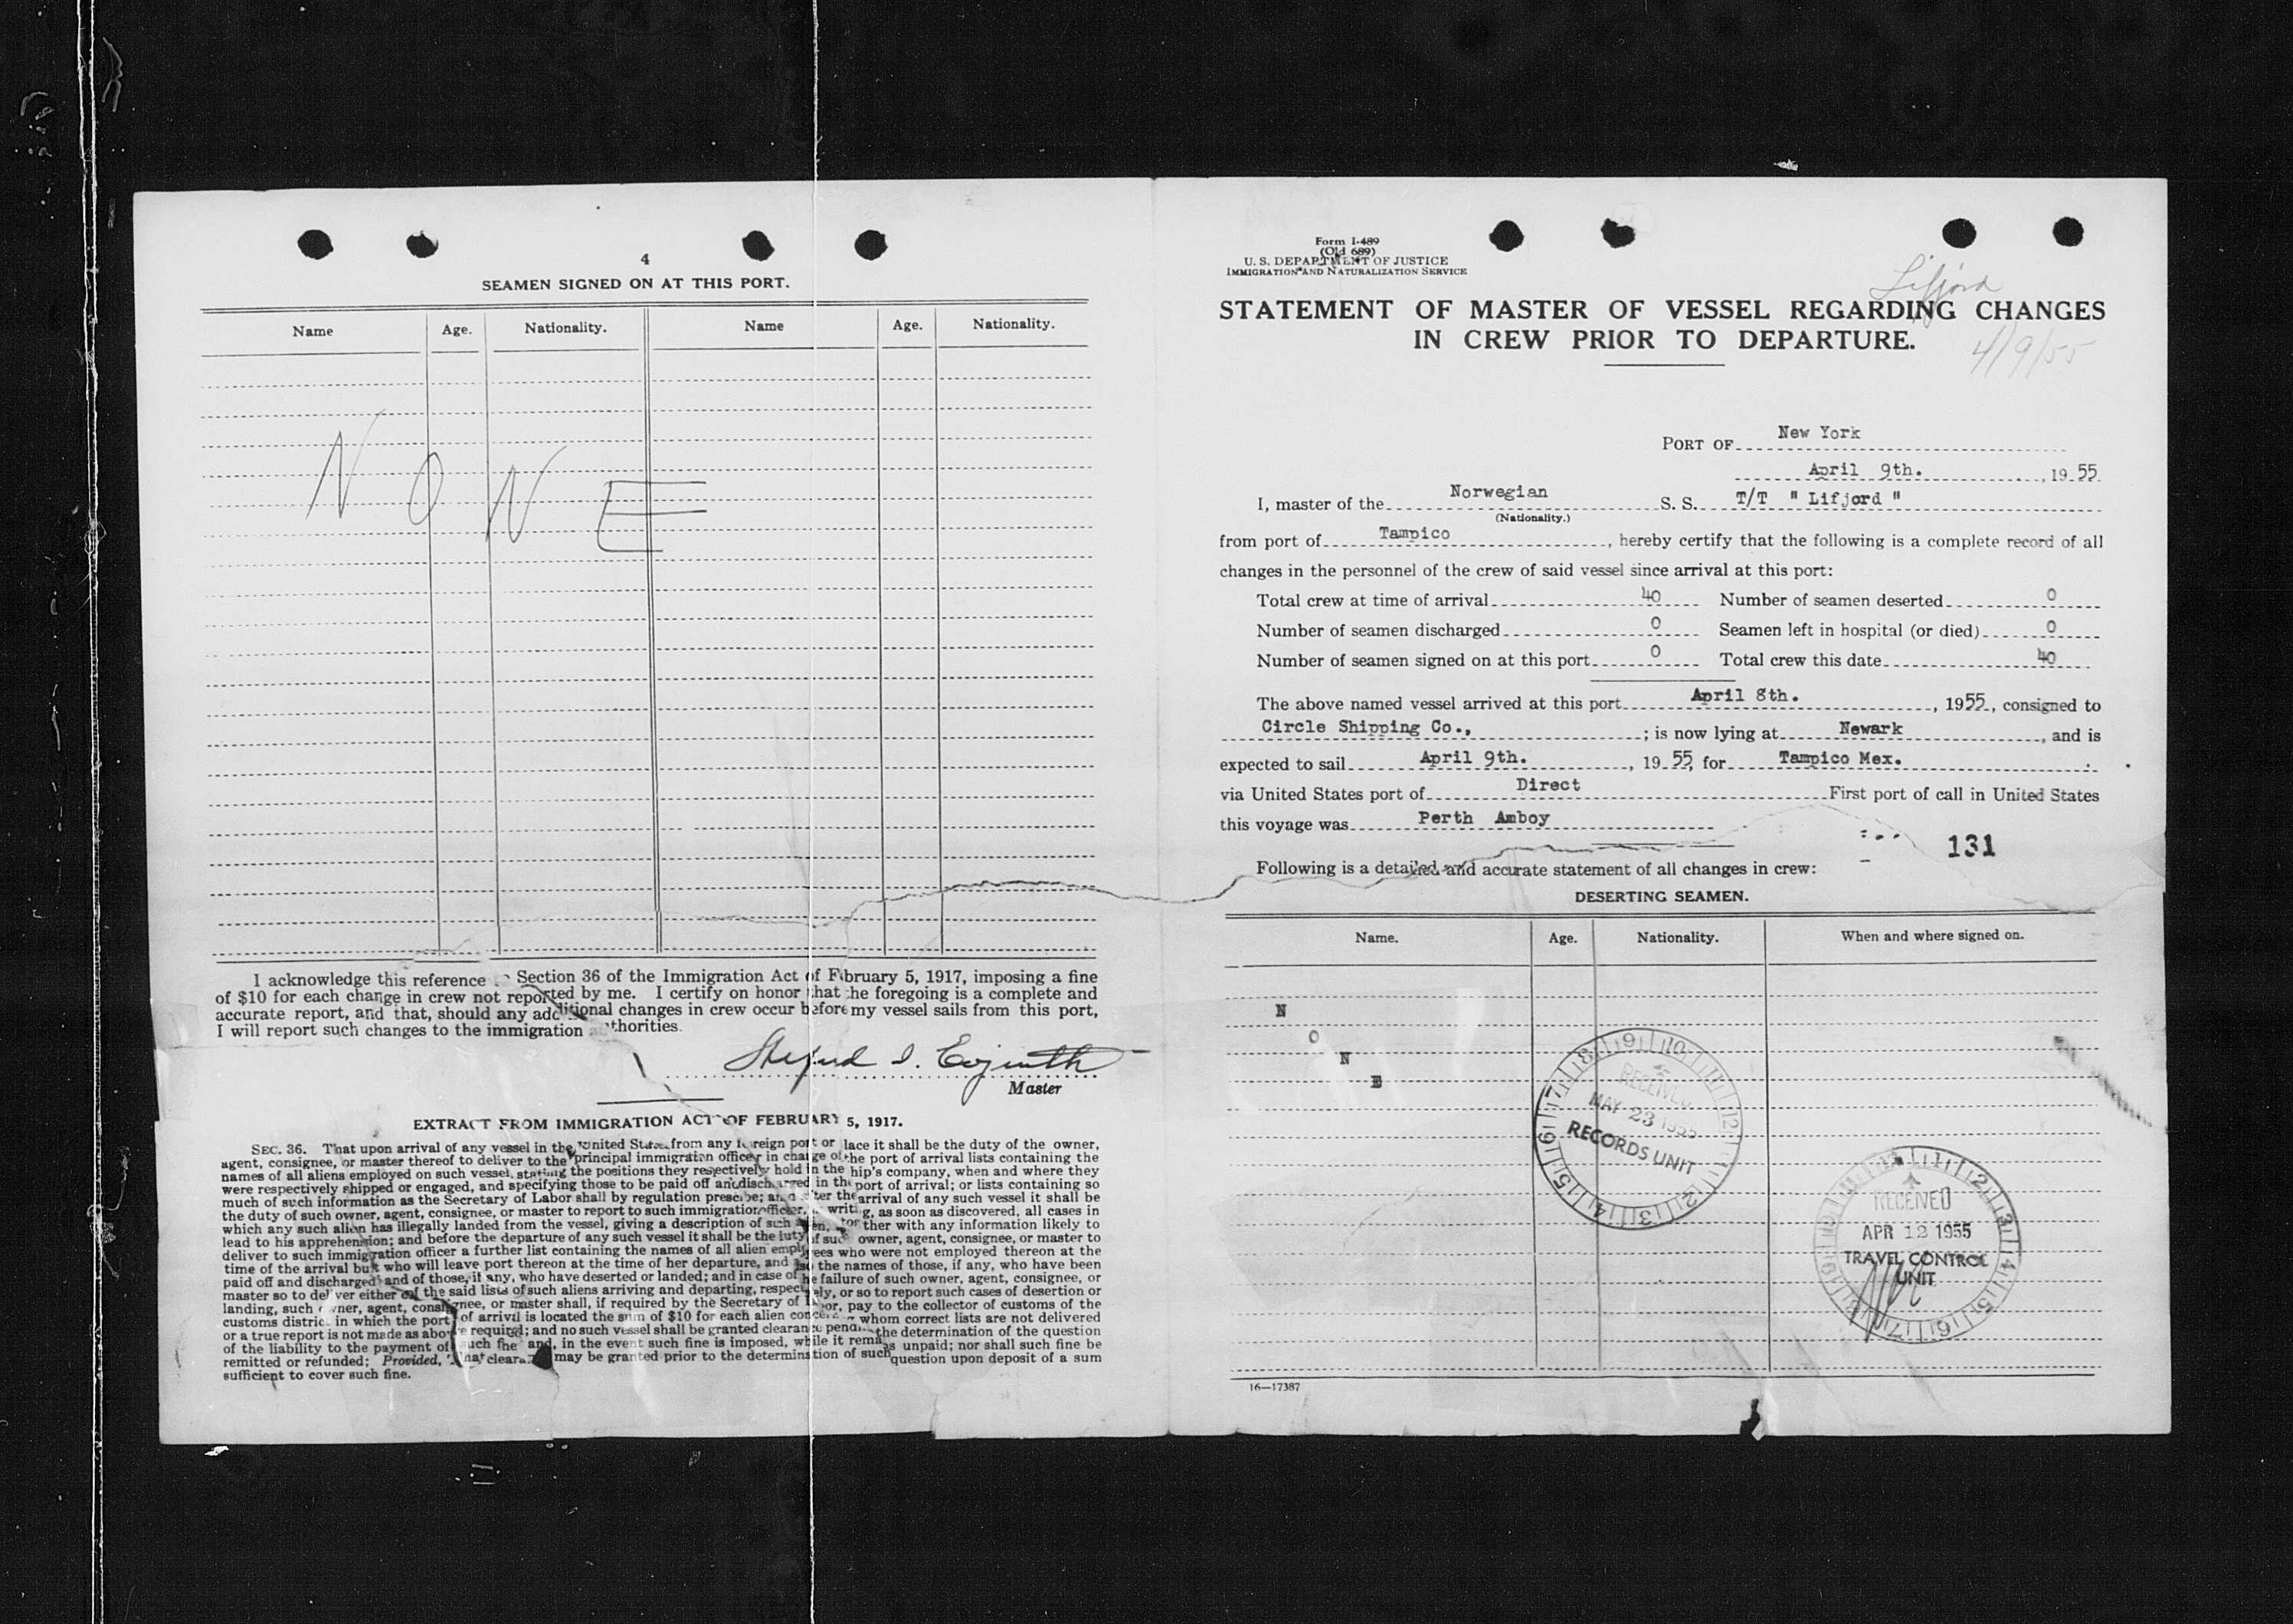 4
SEAMEN SIGNED ON AT THIS PORT.
Name Age. Nationality. Name Age. Nationality.
NONE
I acknowledge this reference Section 36 of the Immigration Act of February 5, 1917, imposing a fine
of $10 for each change in crew not reported by me. I certify on honor that the foregoing is a complete and
accurate report, and that, should any additional changes in crew occur before my vessel sails from this port,
I will report such changes to the immigration authorities.
Master
EXTRACT FROM IMMIGRATION ACT OF FEBRUARY 5, 1917.
SEC. 36. That upon arrival of any vessel in the United States from any foreign port or place it shall be the duty of the owner,
agent, consignee, or master thereof to deliver to the principal immigration officer in charge of the port of arrival lists containing the
names of all aliens employed on such vessel, stating the positions they respectively hold in the ship's company, when and where they
were respectively shipped or engaged, and specifying those to be paid off and discharged in the port of arrival; or lists containing so
much of such information as the Secretary of Labor shall by regulation prescribe; and after the arrival of any such vessel it shall be
the duty of such owner, agent, consignee, or master to report to such immigration officer, in writing, as soon as discovered, all cases in
which any such alien has illegally landed from the vessel, giving a description of such alien, together with any information likely to
lead to his apprehension; and before the departure of any such vessel it shall be the duty of such owner, agent, consignee, or master to
deliver to such immigration officer a further list containing the names of all alien employees who were not employed thereon at the
time of the arrival but who will leave port thereon at the time of her departure, and also the names of those, if any, who have been
paid off and discharged, and of those, if any, who have deserted or landed; and in case of the failure of such owner, agent, consignee, or
master so to deliver either of the said lists of such aliens arriving and departing, respectively, or so to report such cases of desertion or
landing, such owner, agent, consignee, or master shall, if required by the Secretary of Labor, pay to the collector of customs of the
customs district in which the port of arrival is located the sum of $10 for each alien concerning whom correct lists are not delivered
or a true report is not made as above required; and no such vessel shall be granted clearance pending the determination of the question
of the liability to the payment of such fine and, in the event such fine is imposed, while it remains unpaid; nor shall such fine be
remitted or refunded; Provided, That clearance may be granted prior to the determination of such question upon deposit of a sum
sufficient to cover such fine.
Form I-489
(Old 689)
U. S. DEPARTMENT OF JUSTICE
IMMIGRATION AND NATURALIZATION SERVICE
Lifjord
STATEMENT OF MASTER OF VESSEL REGARDING CHANGES
IN CREW PRIOR TO DEPARTURE.
4/9/55
PORT OF New York
April 9th. , 19 55
I, master of the Norwegian S. S. T/T " Lifjord "
(Nationality.)
from port of Tampico , hereby certify that the following is a complete record of all
changes in the personnel of the crew of said vessel since arrival at this port:
Total crew at time of arrival 40 Number of seamen deserted 0
Number of seamen discharged 0 Seamen left in hospital (or died) 0
Number of seamen signed on at this port 0 Total crew this date 40
The above named vessel arrived at this port April 8th. , 1955, consigned to
Circle Shipping Co., ; is now lying at Newark , and is
expected to sail April 9th. , 19 55, for Tampico Mex. .
via United States port of Direct First port of call in United States
this voyage was Perth Amboy
131
Following is a detailed and accurate statement of all changes in crew:
DESERTING SEAMEN.
Name. Age. Nationality. When and where signed on.
N
O
N
E
RECEIVED
MAY 23 1955
RECORDS UNIT
RECEIVED
APR 12 1955
TRAVEL CONTROL
UNIT
16—17387